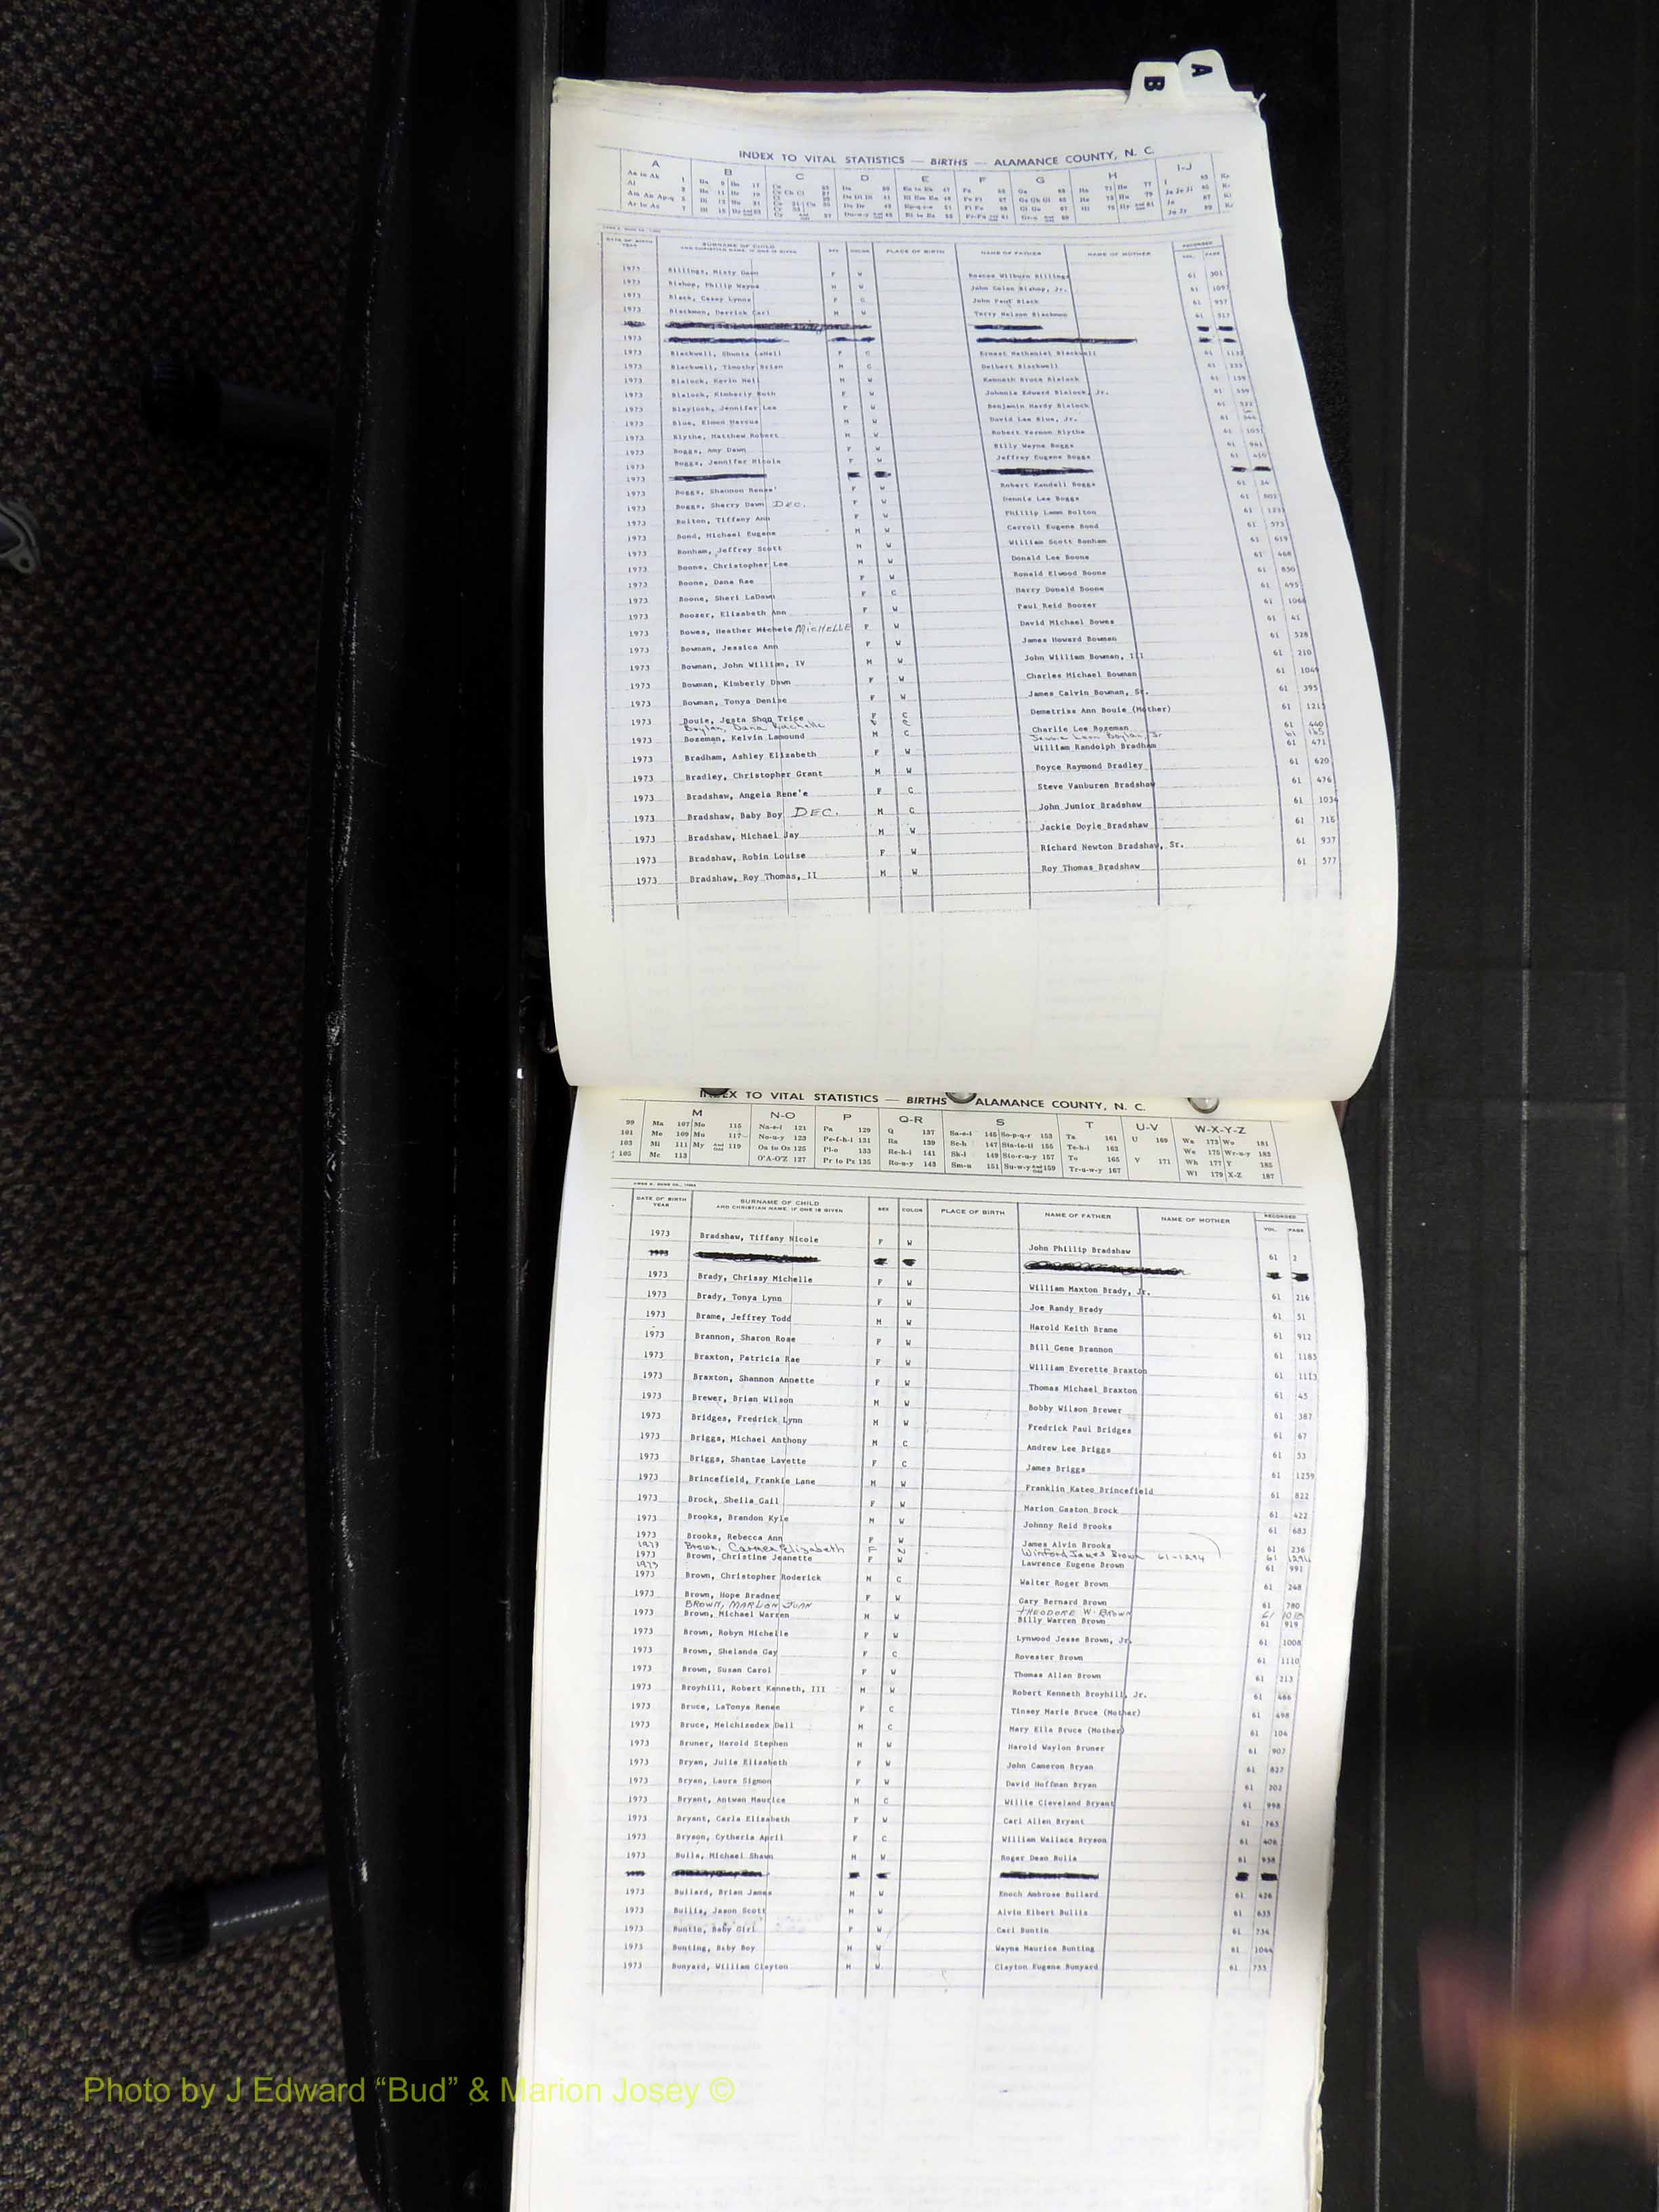 A
B
INDEX TO VITAL STATISTICS — BIRTHS — ALAMANCE COUNTY, N. C.
A B C D E F G H I-J
DATE OF BIRTH YEAR SURNAME OF CHILD AND CHRISTIAN NAME, IF ONE IS GIVEN SEX COLOR PLACE OF BIRTH NAME OF FATHER NAME OF MOTHER RECORDED VOL. PAGE
1973 Billings, Misty Dawn F W Roscoe Wilburn Billings 61 301
1973 Bishop, Philip Wayne M W John Colon Bishop, Jr. 61 1097
1973 Black, Casey Lynne F C John Paul Black 61 957
1973 Blackmon, Derrick Carl M W Terry Nelson Blackmon 61 517
1973
1973 Blackwell, Shunta LaNell F C Ernest Nathaniel Blackwell 61
1973 Blackwell, Timothy Brian M C Delbert Blackwell 61
1973 Blalock, Kevin M W Kenneth Bruce Blalock 61
1973 Blalock, Kimberly Ruth F W Johnnie Edward Blalock, Jr. 61
1973 Blaylock, Jennifer Lee F W Benjamin Hardy Blalock 61
1973 Blue, Elmon Marcus M W David Lee Blue, Jr. 61
1973 Blythe, Matthew Robert M W Robert Vernon Blythe 61
1973 Boggs, Amy Dawn F W Billy Wayne Boggs 61 961
1973 Boggs, Jennifer Nicole F W Jeffrey Eugene Boggs 61 450
1973
1973 Boggs, Shannon Renee' F W Robert Kendall Boggs 61 34
1973 Boggs, Sherry Dawn DEC. F W Dennis Lee Boggs 61 802
1973 Bolton, Tiffany Ann F W Phillip Lamm Bolton 61
1973 Bond, Michael Eugene M W Carroll Eugene Bond 61 573
1973 Bonham, Jeffrey Scott M W William Scott Bonham 61 619
1973 Boone, Christopher Lee M W Donald Lee Boone 61 468
1973 Boone, Dana Rae F W Ronald Elwood Boone 61 850
1973 Boone, Sheri LaDawn F C Harry Donald Boone 61 495
1973 Boozer, Elizabeth Ann F W Paul Reid Boozer 61 1068
1973 Bowes, Heather Michele MICHELLE F W David Michael Bowes 61 41
1973 Bowman, Jessica Ann F W James Howard Bowman 61 528
1973 Bowman, John William, IV M W John William Bowman, III 61 210
1973 Bowman, Kimberly Dawn F W Charles Michael Bowman 61 1049
1973 Bowman, Tonya Denise F W James Calvin Bowman, Sr. 61 395
1973 Bouie, Jesta Shon Trice F C Demetriss Ann Bouie (Mother) 61 1215
Boylan, Dana Rachelle Jessie Leon Boylan, Jr 61 165
1973 Bozeman, Kelvin Lamound M C Charlie Lee Bozeman 61 440
1973 Bradham, Ashley Elizabeth F W William Randolph Bradham 61 471
1973 Bradley, Christopher Grant M W Boyce Raymond Bradley 61 620
1973 Bradshaw, Angela Rene'e F C Steve Vanburen Bradshaw 61 476
1973 Bradshaw, Baby Boy DEC. M C John Junior Bradshaw 61 1034
1973 Bradshaw, Michael Jay M W Jackie Doyle Bradshaw 61 716
1973 Bradshaw, Robin Louise F W Richard Newton Bradshaw, Sr. 61 937
1973 Bradshaw, Roy Thomas, II M W Roy Thomas Bradshaw 61 577
INDEX TO VITAL STATISTICS — BIRTHS ALAMANCE COUNTY, N. C.
M N-O P Q-R S T U-V W-X-Y-Z
99 Ma 107 Mo 115 Na-e-i 121 Pa 129 Q 137 Sa-c-i 145 So-p-q-r 153 Ta 161 U 169 Wa 173 Wo 181
101 Me 109 Mu 117 No-u-y 123 Pe-f-h-i 131 Ra 139 Sc-h 147 Sta-te-ti 155 Te-h-i 163 We 175 Wr-u-y 183
103 Mi 111 My And Odd 119 Oa to Os 125 Pl-o 133 Re-h-i 141 Sk-l 149 Sto-r-u-y 157 To 165 V 171 Wh 177 Y 185
105 Mc 113 O'A-O'Z 127 Pr to Pz 135 Ro-u-y 143 Sm-n 151 Su-w-y And Odd 159 Tr-u-w-y 167 Wi 179 X-Z 187
DATE OF BIRTH YEAR SURNAME OF CHILD AND CHRISTIAN NAME, IF ONE IS GIVEN SEX COLOR PLACE OF BIRTH NAME OF FATHER NAME OF MOTHER RECORDED VOL. PAGE
1973 Bradshaw, Tiffany Nicole F W John Phillip Bradshaw 61 2
1973 Brady, Chrissy Michelle F W William Maxton Brady, Jr. 61 216
1973 Brady, Tonya Lynn F W Joe Randy Brady 61 51
1973 Brame, Jeffrey Todd M W Harold Keith Brame 61 912
1973 Brannon, Sharon Rose F W Bill Gene Brannon 61 1185
1973 Braxton, Patricia Rae F W William Everette Braxton 61 1113
1973 Braxton, Shannon Annette F W Thomas Michael Braxton 61 45
1973 Brewer, Brian Wilson M W Bobby Wilson Brewer 61 387
1973 Bridges, Fredrick Lynn M W Fredrick Paul Bridges 61 67
1973 Briggs, Michael Anthony M C Andrew Lee Briggs 61 53
1973 Briggs, Shantae Lavette F C James Briggs 61 1259
1973 Brincefield, Frankie Lane M W Franklin Kateo Brincefield 61 822
1973 Brock, Sheila Gail F W Marion Gaston Brock 61 422
1973 Brooks, Brandon Kyle M W Johnny Reid Brooks 61 683
1973 Brooks, Rebecca Ann F W James Alvin Brooks 61 236
1973 Brown, Carmen Elizabeth F N Winford James Brown 61-1294 61 1294
1973 Brown, Christine Jeanette F W Lawrence Eugene Brown 61 991
1973
1973 Brown, Christopher Roderick M C Walter Roger Brown 61 248
1973 Brown, Hope Bradner F W Gary Bernard Brown 61 780
BROWN, MARLON JUAN THEODORE W. BROWN 61
1973 Brown, Michael Warren M W Billy Warren Brown 61 919
1973 Brown, Robyn Michelle F W Lynwood Jesse Brown, Jr. 61 1008
1973 Brown, Shelanda Gay F C Rovester Brown 61 1110
1973 Brown, Susan Carol F W Thomas Allan Brown 61 213
1973 Broyhill, Robert Kenneth, III M W Robert Kenneth Broyhill, Jr. 61 466
1973 Bruce, LaTonya Renee F C Tinsey Marie Bruce (Mother) 61 498
1973 Bruce, Melchizedex Dell M C Mary Ella Bruce (Mother) 61 104
1973 Bruner, Harold Stephen M W Harold Waylon Bruner 61 907
1973 Bryan, Julie Elizabeth F W John Cameron Bryan 61 827
1973 Bryan, Laura Sigmon F W David Hoffman Bryan 61 202
1973 Bryant, Antwan Maurice M C Willie Cleveland Bryant 61 998
1973 Bryant, Carla Elizabeth F W Carl Allen Bryant 61 763
1973 Bryson, Cytheria April F C William Wallace Bryson 61 406
1973 Bulla, Michael Shawn M W Roger Dean Bulla 61 938
1973 Bullard, Brian James M W Enoch Ambrose Bullard 61 426
1973 Bullis, Jason Scott M W Alvin Elbert Bullis 61 635
1973 Buntin, Baby Girl F W Carl Buntin 61 734
1973 Bunting, Baby Boy M W Wayne Maurice Bunting 61 1044
1973 Bunyard, William Clayton M W Clayton Eugene Bunyard 61 755
Photo by J Edward “Bud” & Marion Josey ©